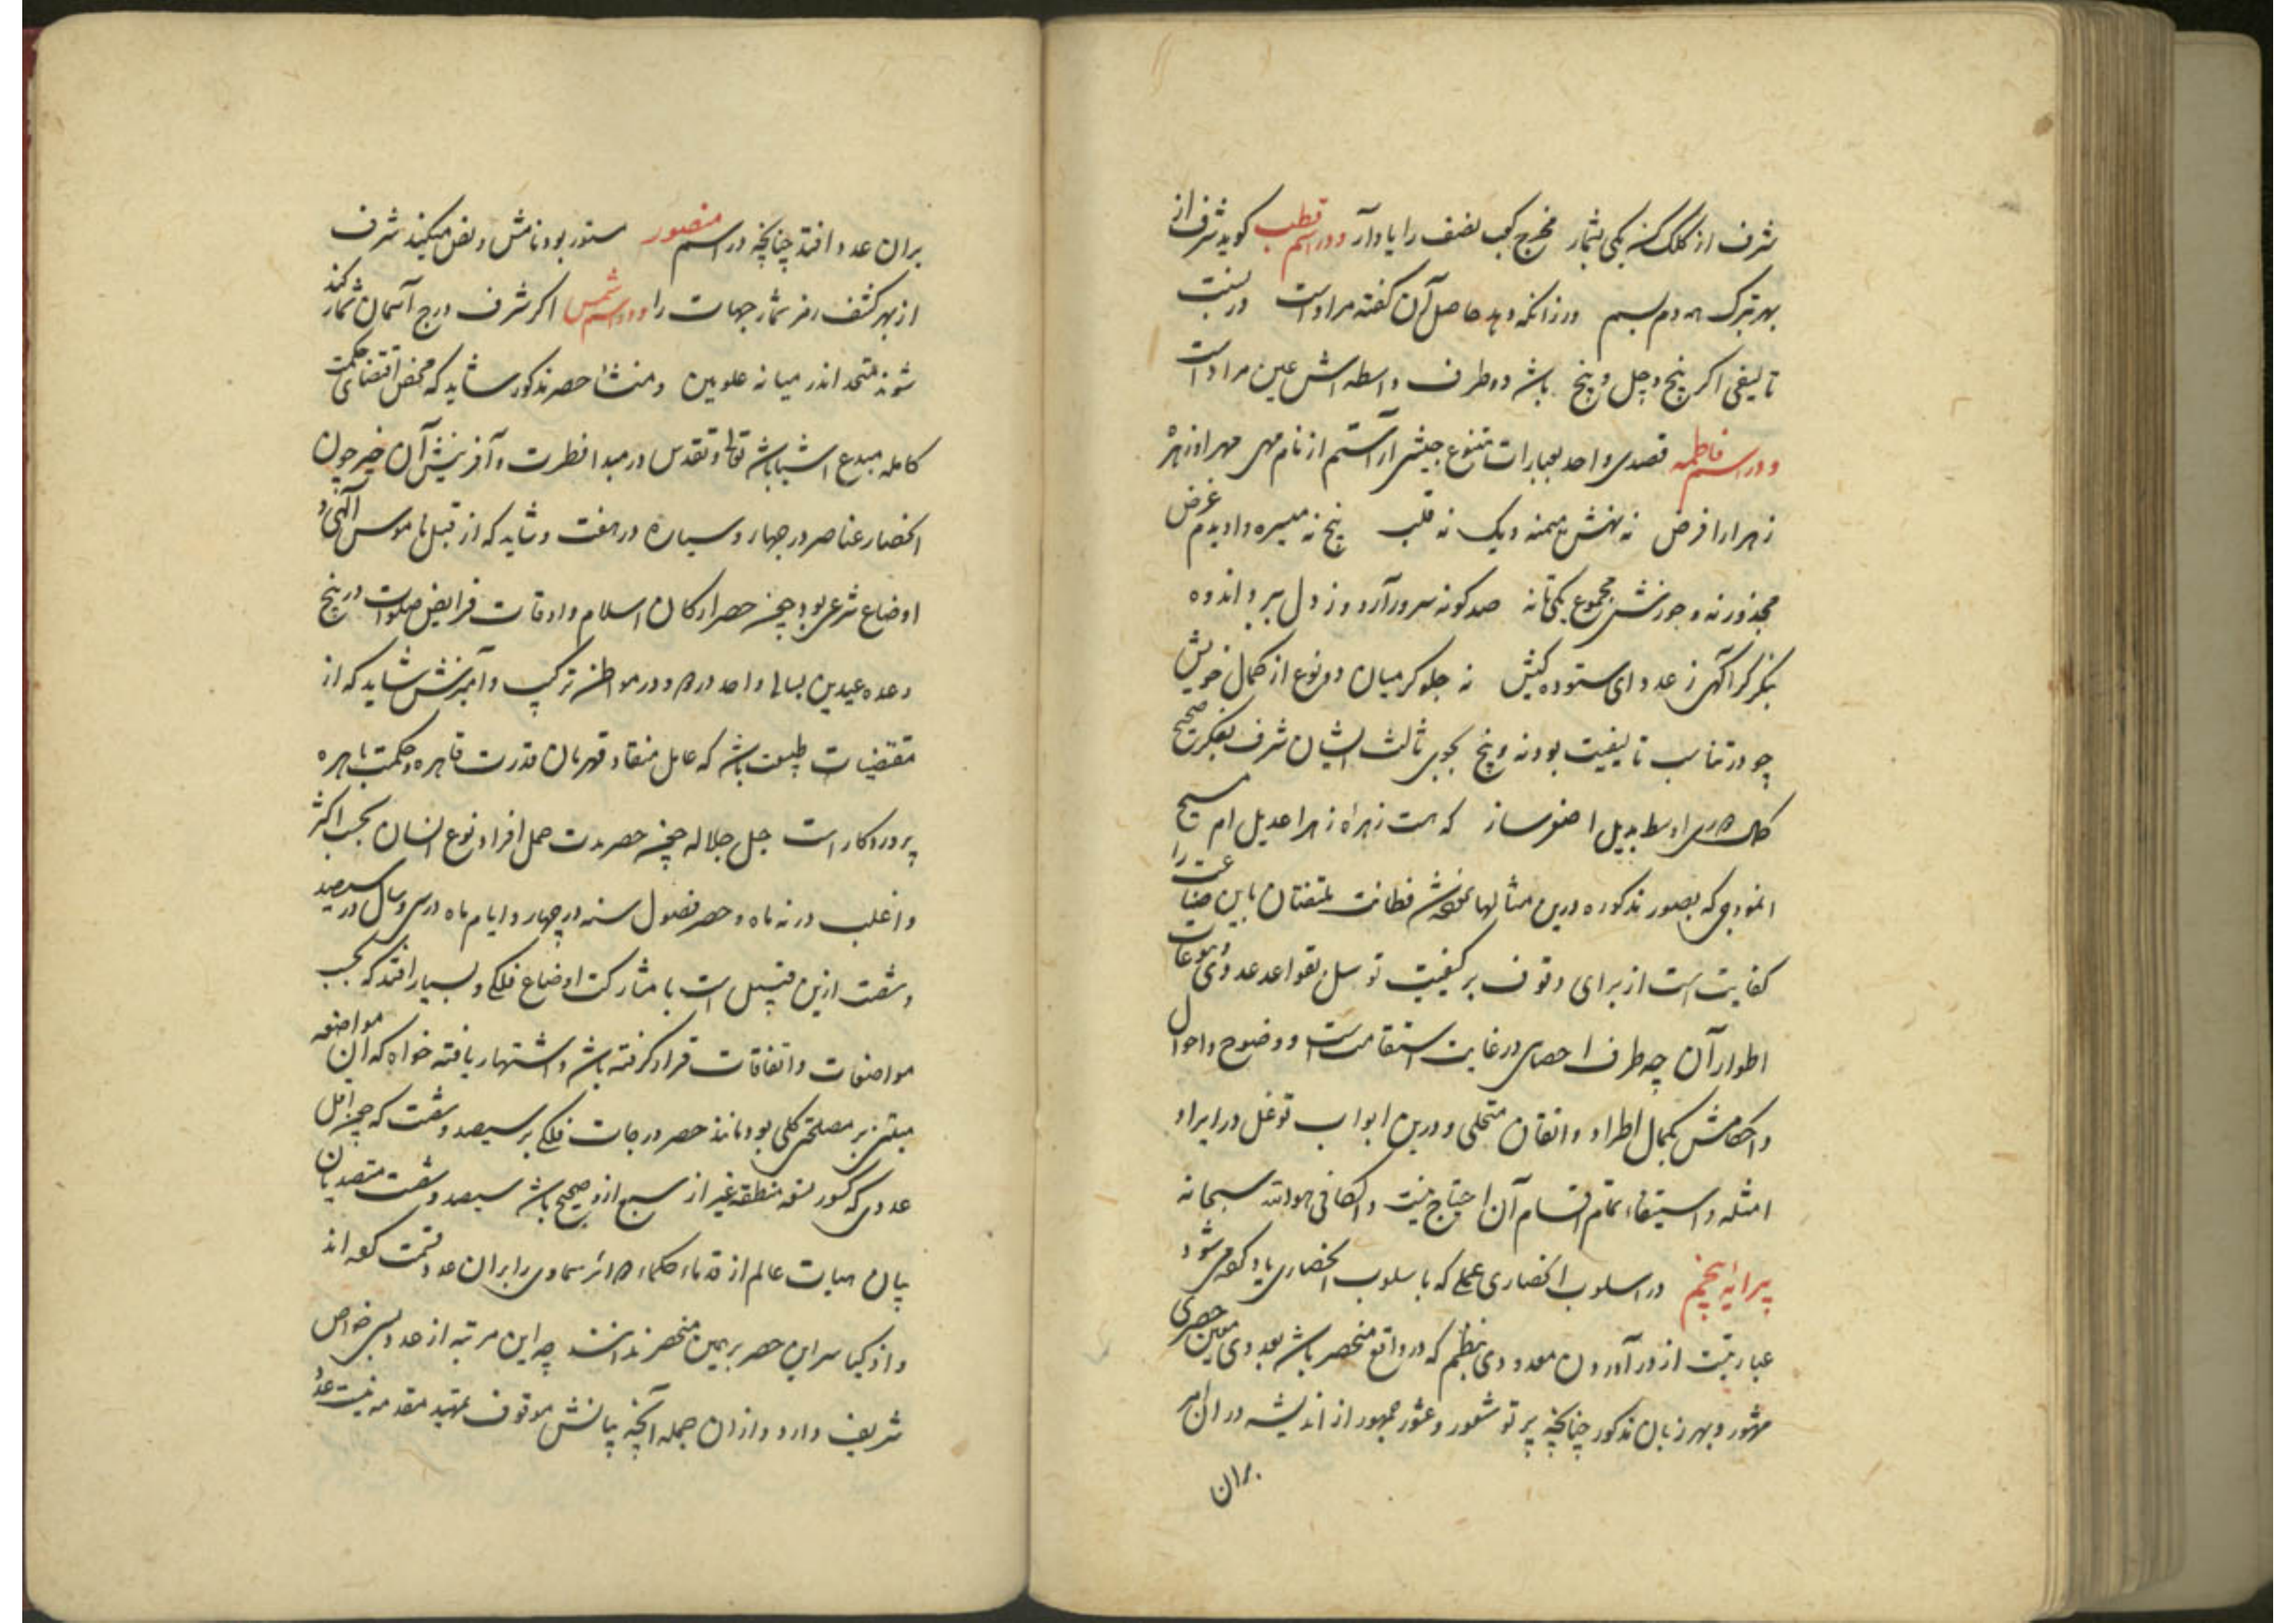 شرف از کلک یکی بشمار مخرج کسب نصف را یاد آر و در اسم قطب کوید شرف از
بهر تبرک همه دم بسم ورزانکه دهد حاصل آن کفته مراد است در نسبت
تالیفی اکر پنج و چل و پنج باشد دو طرف واسطه اش عین مراد است
و در اسم فاطمه قصدی واحد بعبارات متنوع جیشی آراستم از نام مهی مهر اوز
زهرا را فرض نه میمنه ویک نه قلب پنج نه میسره دادیدم عرض
مجذور نه و جزرش مجموع یکی تا نه صد کونه سرور آرد وز دل ببرد اندوه
بنکر کر آکهی ز عدد ای ستوده کیش نه جلوه کر میان دو نوع از کمال خویش
چو در تناسب تالیفیت بود نه و پنج بجوی ثالث ایشان شرف بفکر صحیح
اوسط بدیل اصغر ساز که هست زهراه زهرا عدیل ام مسیح
انموذجی که بصور مذکوره درین مثالها فطانت متفننان باین صناعت را
کفایت است از برای وقوف بر کیفیت توسل بقواعد عددی و
اطوار آن چه طرف احصای در غایت استقامت است و وضوح و احوال
و احکامش بکمال اطراد و اتقان متحلی و درین ابواب توغل در ایراد
امثله و استیفاء تمام اقسام آن احتیاج نیست و الکافی هو الله سبحانه
پیرایه پنجم در اسلوب انحصاری عملی که باسلوب انحصاری یاد کرده می شود
عبارتیست از در آوردن معدودی بنظم که در واقع منحصر باشد بعددی معین حصری
مشهور و بهر زبان مذکور چنانچه پرتو شعور و عثور جمهور از اندیشه در ان امر
بران
بران عدد افتد چنانچه در اسم منصور مستور بود نامش و نص میکند شرف
از بهر کشف رمز شمار جهات را و در اسم شمس اکر شرف درج آسمان شمار کند
شوند متحد اندر میانه علویین و منشأ حصر مذکور شاید که محض اقتضای حکمت
کامله مبدع اشیا باشد تعالی و تقدس در مبدا فطرت و آفرینش آن چیز چون
انحصار عناصر در چهار و سیاره در هفت و شاید که از قبل ناموس الهی و
اوضاع شرعی بود چون حصر ارکان اسلام و اوقات فرایض صلوات در پنج
و عده عیدین بسالی واحد در دو و در مواطن ترکیب و آمیزش شاید که از
مقتضیات طبیعت باشد که عامل منقاد قهرمان قدرت قاهره و حکمت باهره
پروردکار است جل جلاله چون حصر مدت حمل افراد نوع انسان بحسب اکثر
و اغلب در نه ماه و حصر فصول سنه در چهار و ایام ماه در سی و سال در سیصد
و شصت ازین قبیل است با مشارکت اوضاع فلکی و بسیار افتد که بحسب
مواضعات و اتفاقات قرار کرفته باشد و اشتهار یافته خواه که آن مواضعه
مبتنی بر مصلحتی کلی بود مانند حصر درجات فلکی بر سیصد و شصت که چون اقل
عددی که کسور تسعه منطقه غیر از سبع ازو صحیح باشد سیصد و شصت متصدیان
بیان هیات عالم از قدماء حکماء دوائر سماوی را بران عدد قسمت کرده اند
و از کیاسر این حصر برین منحصر ندانند چه این مرتبه از عدد بسی خواص
شریف دارد و ازان جمله آنچه بیانش موقوف تمهید مقدمه نیست